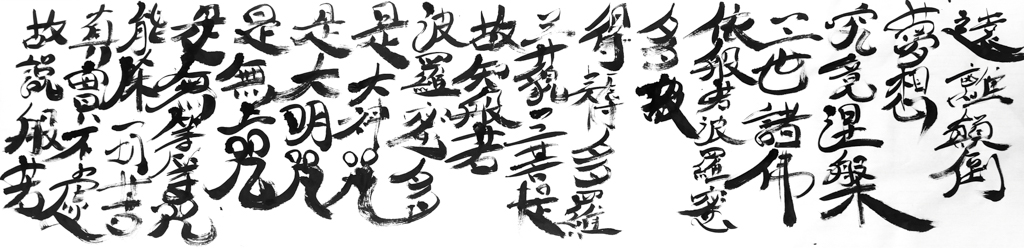 遠離顛倒
夢想
究竟涅槃
三世諸佛
依般若波羅蜜
多故
得耨多羅
三藐三菩提
故知般若
波羅蜜多
是大神咒
是大明咒
是無上咒
是無等等咒
能除一切苦
真實不虛
故說般若